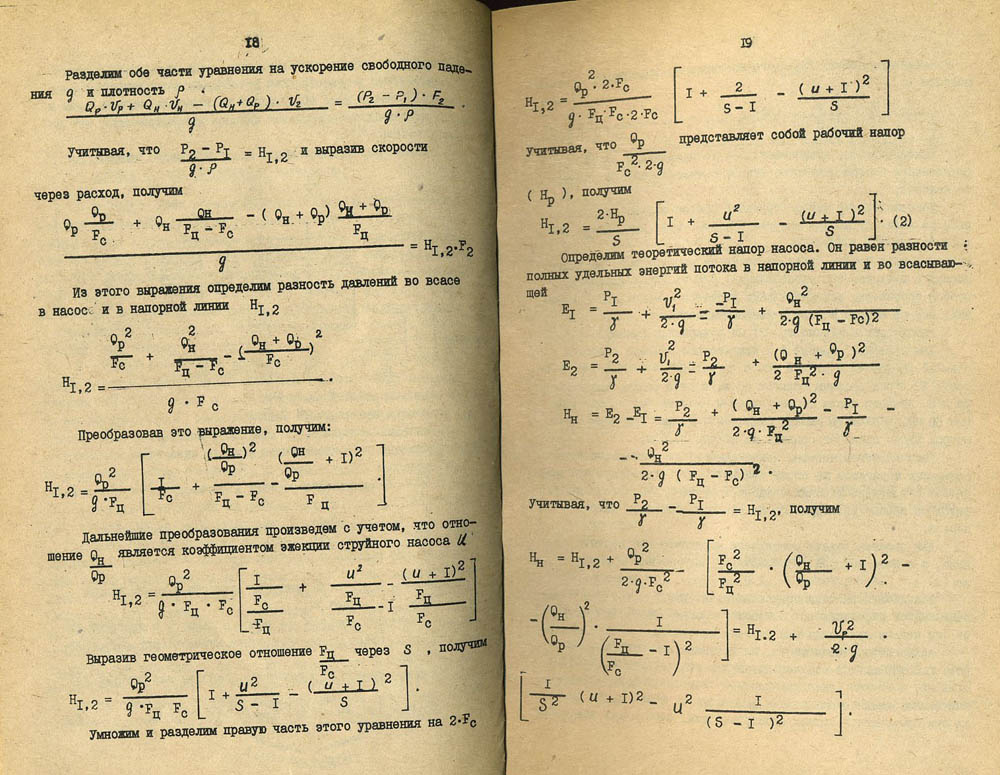 18
Разделим обе части уравнения на ускорение свободного паде-
ния g и плотность ρ .
(Qр·Uр + Qн·Uн − (Qн+Qр)·U₂) / g = ((P₂ − P₁)·F₂) / (g·ρ) .
Учитывая, что (P₂ − P_I) / (g·ρ) = H_I,₂ и выразив скорости
через расход, получим
(Qр Qр/Fс + Qн Qн/(Fц − Fс) − (Qн + Qр) (Qн + Qр)/Fц) / g = H_I,₂·F₂
Из этого выражения определим разность давлений во всасе
в насос и в напорной линии H_I,₂
H_I,₂ = (Qр²/Fс + Qн²/(Fц − Fс) − ((Qн + Qр)/Fс)²) / (g · Fс) .
Преобразовав это выражение, получим:
H_I,₂ = Qр²/(g·Fц) [ I/Fс + (Qн/Qр)²/(Fц − Fс) − (Qн/Qр + I)²/Fц ] .
Дальнейшие преобразования произведем с учетом, что отно-
шение Qн/Qр является коэффициентом эжекции струйного насоса U
H_I,₂ = Qр²/(g · Fц · Fс) [ I/(Fс/Fц) + u²/(Fц/Fс − I) − (u + I)²/(Fц/Fс) ]
Выразив геометрическое отношение Fц/Fс через S , получим
H_I,₂ = Qр²/(g ·Fц Fс) [ I + u²/(S − I) − (u + I)²/S ] .
Умножим и разделим правую часть этого уравнения на 2·Fс
19
H_I,₂ = Qр²·2·Fс/(g·Fц·Fс·2·Fс) [ I + 2/(S−I) − (u + I)²/S ]
Учитывая, что Qр/(Fс²·2·g) представляет собой рабочий напор
( Hр ), получим
H_I,₂ = 2·Hр/S [ I + u²/(S − I) − (u + I)²/S ] . (2)
Определим теоретический напор насоса. Он равен разности
полных удельных энергий потока в напорной линии и во всасываю-
щей
E_I = P_I/γ + U₁²/(2·g) = P_I/γ + Qн²/(2·g (Fц − Fс)2)
E₂ = P₂/γ + U₁²/(2·g) = P₂/γ + (Qн + Qр)²/(2 Fц²·g)
Hн = E₂ − E_I = P₂/γ + (Qн + Qр)²/(2·g·Fц²) − P_I/γ −
− Qн²/(2·g (Fц − Fс)²) .
Учитывая, что P₂/γ − P_I/γ = H_I,₂, получим
Hн = H_I,₂ + Qр²/(2·g·Fс²) [ Fс²/Fц² · (Qн/Qр + I)² −
− (Qн/Qр)² · I/(Fц/Fс − I)² ] = H_I.₂ + Uр²/(2·g) ·
[ I/S² (u + I)² − u² I/(S − I)² ] .